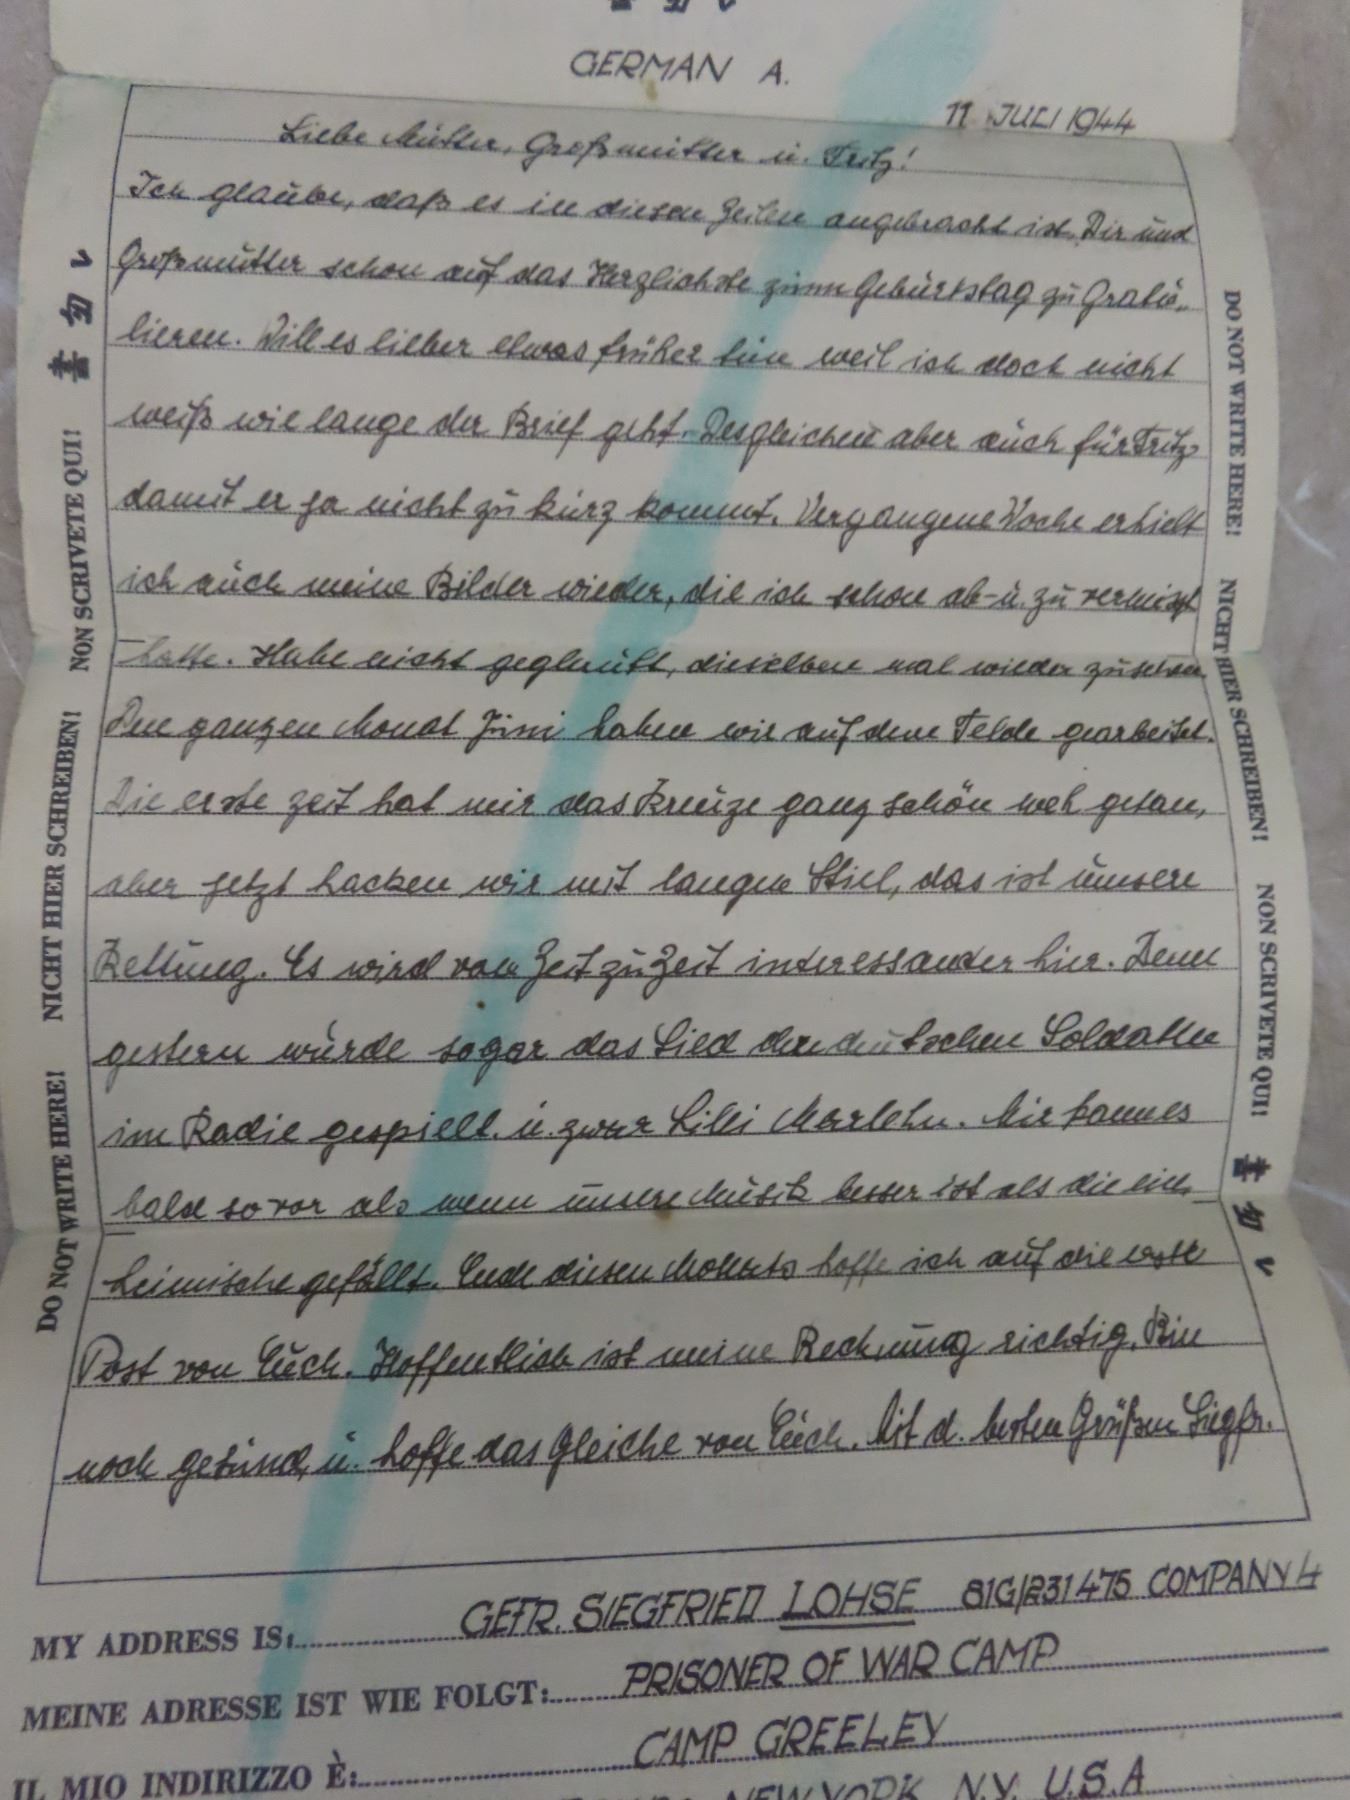 GERMAN A.
11 JULI 1944
Liebe Mutter, Großmutter u. Fritz!
Ich glaube, daß es in diesen Zeilen angebracht ist, Dir und
Großmutter schon auf das Herzlichste zum Geburtstag zu Gratu-
lieren. Will es lieber etwas früher tun weil ich doch nicht
weiß wie lange der Brief geht. Desgleichen aber auch für Fritz
damit er ja nicht zu kurz kommt. Vergangene Woche erhielt
ich auch meine Bilder wieder, die ich schon ab- u. zu vermißt
hatte. Habe nicht geglaubt, dieselben mal wieder zusehen
Den ganzen Monat Juni haben wir auf dem Felde gearbeitet.
Die erste Zeit hat mir das Kreuze ganz schön weh getan,
aber jetzt hacken wir mit langen Stiel, das ist unsere
Rettung. Es wird von Zeit zu Zeit interessander hier. Denn
gestern wurde sogar das Lied der deutschen Soldaten
im Radio gespielt. u. zwar Lilli Marlehn. Mir kam es
bald so vor als wenn unsere Musik besser ist als die ein-
heimische gefällt. Ende diesen Monats hoffe ich auf die erste
Post von Euch. Hoffentlich ist meine Rechnung richtig. Bin
noch gesund, u. hoffe das Gleiche von Euch. Mit d. besten Grüßen Siegfr.
MY ADDRESS IS: GEFR. SIEGFRIED LOHSE 81G/231475 COMPANY 4
MEINE ADRESSE IST WIE FOLGT: PRISONER OF WAR CAMP
IL MIO INDIRIZZO È: CAMP GREELEY
NEW YORK, N.Y. U.S.A
DO NOT WRITE HERE! NICHT HIER SCHREIBEN! NON SCRIVETE QUI! 書勿レ
DO NOT WRITE HERE! NICHT HIER SCHREIBEN! NON SCRIVETE QUI! 書勿レ